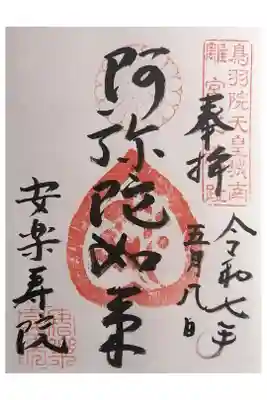 鳥羽院天皇城南
離宮址
奉拝
令和七年
五月八日
阿弥陀如来
安楽寿院